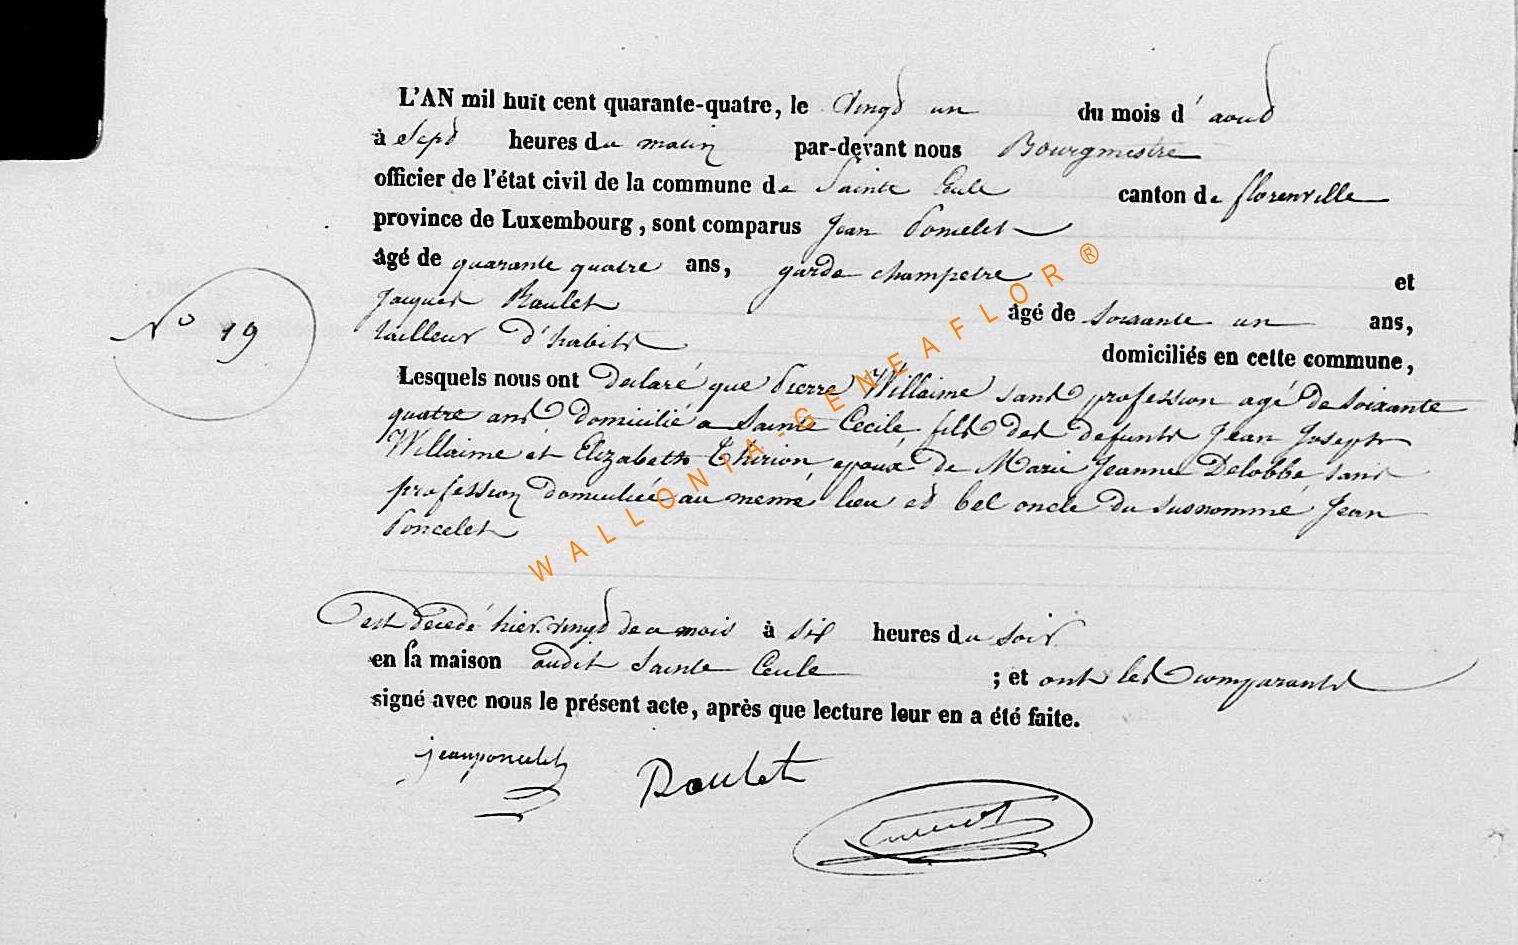 L'AN mil huit cent quarante-quatre, le vingt un du mois d'aout
à Sept heures du matin par-devant nous Bourgmestre
officier de l'état civil de la commune de Sainte Cecile canton de florenville
province de Luxembourg, sont comparus Jean Poncelet
âgé de quarante quatre ans, garde champetre et
Jacques Roulet âgé de soixante un ans,
tailleur d'habits domiciliés en cette commune,
N° 19
Lesquels nous ont declaré que Pierre Willaime sans profession agé de soixante
quatre ans domicilié a Sainte Cecile fils des defunts Jean Joseph
Willaime et Elizabeth Thirion epoux de Marie Jeanne Delobbe sans
profession domiciliée au meme lieu et bel oncle du susnommé Jean
Poncelet
est décédé hier vingt de ce mois à six heures du soir
en sa maison audit Sainte Cecile ; et ont les comparants
signé avec nous le présent acte, après que lecture leur en a été faite.
jean poncelet Roulet
WALLONIA-GENEAFLOR ®